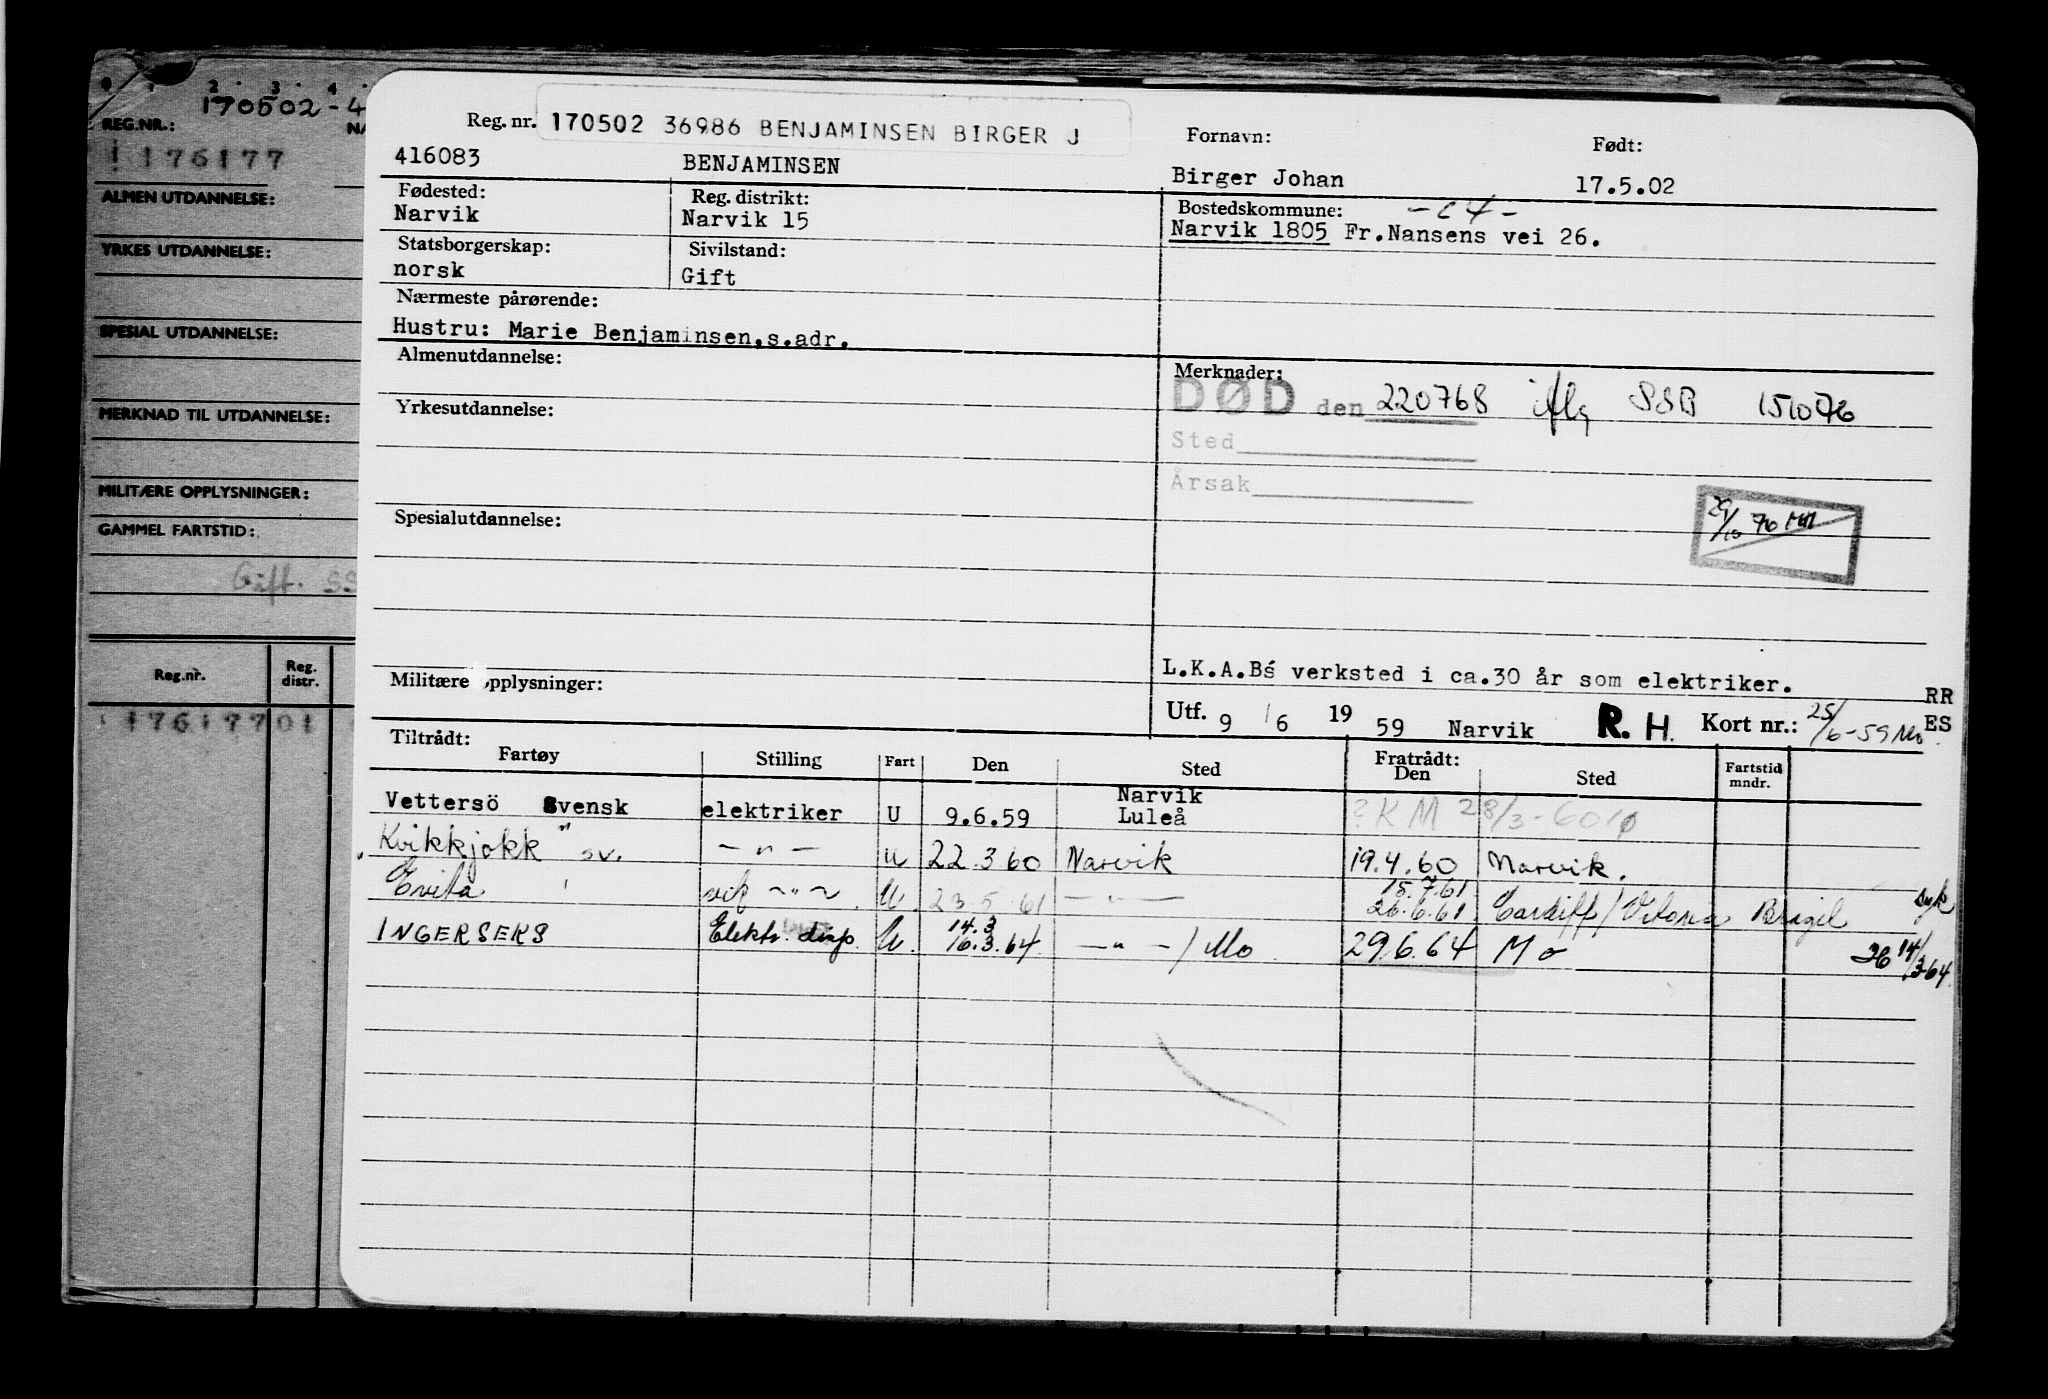 0 1 2 3 4
170502-4
REG.NR.:
176177
ALMEN UTDANNELSE:
YRKES UTDANNELSE:
SPESIAL UTDANNELSE:
MERKNAD TIL UTDANNELSE:
MILITÆRE OPPLYSNINGER:
GAMMEL FARTSTID:
Gift. SS
Reg.nr. Reg. distr.
17617701
Reg. nr. 170502 36986 BENJAMINSEN BIRGER J Fornavn: Født:
416083 BENJAMINSEN Birger Johan 17.5.02
Fødested: Reg. distrikt: Bostedskommune: -c4-
Narvik Narvik 15 Narvik 1805 Fr.Nansens vei 26.
Statsborgerskap: Sivilstand:
norsk Gift
Nærmeste pårørende:
Hustru: Marie Benjaminsen,s.adr.
Almenutdannelse: Merknader:
DØD den 220768 iflg SSB 151076
Yrkesutdannelse:
Sted
Årsak
29/10 76 MH
Spesialutdannelse:
L.K.A.B's verksted i ca.30 år som elektriker. RR
Militære opplysninger:
Utf. 9/6 1959 Narvik R.H. Kort nr.: 25/6-59 ES
Tiltrådt: Fratrådt:
Fartøy Stilling Fart Den Sted Den Sted Fartstid mndr.
Vettersö Svensk elektriker U 9.6.59 Narvik Luleå ?KM 28/3-60
"Kvikkjokk" sv. -"- U 22.3.60 Narvik 19.4.60 Narvik.
Evita vik -"- U. 23.5.61 -"- 15.7.61 26.6.61 Cardiff/Vitoria Brasil syk
INGERSEKS Elektr. disp. U. 14.3 16.3.64 -"-/Mo 29.6.64 Mo 26 14/3-64